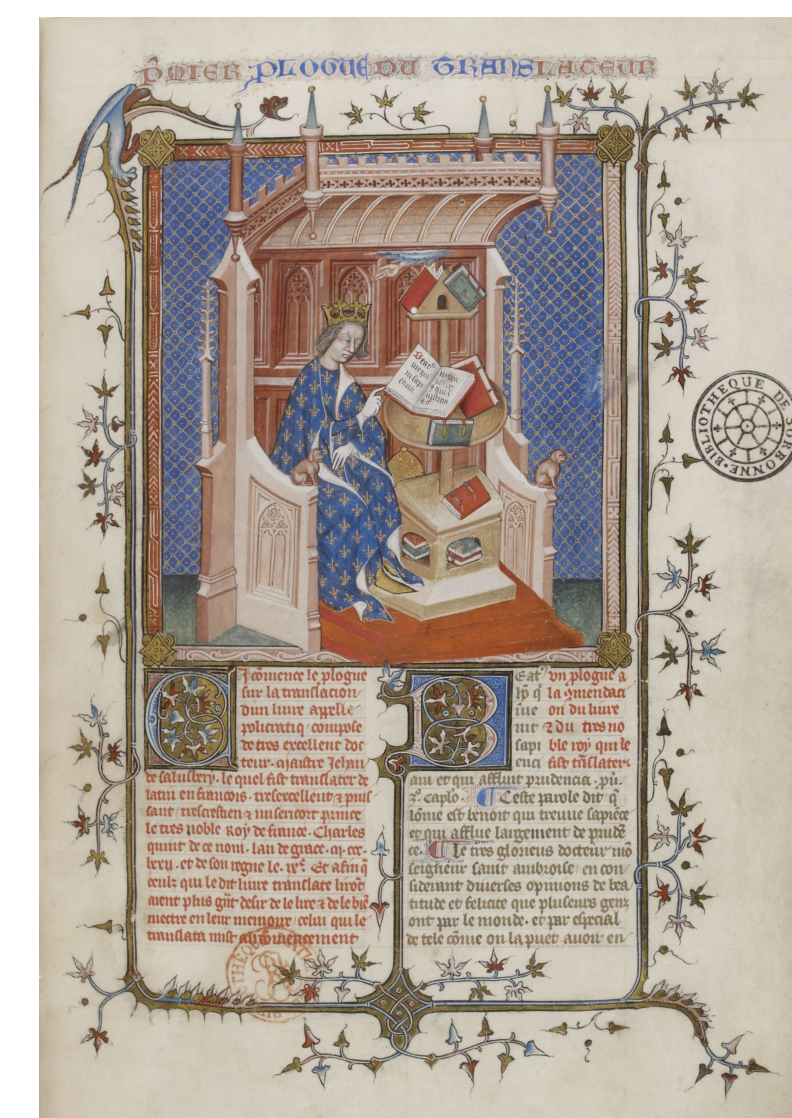 P̃MIER PLOGUE DU TRANSLATEUR
Beat
BIBLIOTHEQUE DE SORBONNE
Cy cõmence le plogue
sur la translacion
dun liure appelle
policratiq compose
de tres excellent doc
teur. maistre Jehan
de salusbery. le quel fist translater de
latin en francois. tresexcellent ⁊ puis
sant trescrestien ⁊ misericort prince
le tres noble Roy de france. Charles
quint de ce nom. lan de grace. m. ccc.
lxxij. et de son regne le. ixe. Et afin q̃
ceulx qui le dit liure translate
aient plus gñt desir de le lire ⁊ de le biẽ
mectre en leur memoire celui qui le
translata mist au cõmencement
Beatꝰ vn plogue a
hõ q̃ la ꝯmendaci
inue on du liure
nit ⁊ du tres no
sapi ble roy qui le
enci fist trãslater.
am et qui affluit prudencia. pũ.
3o. caplo. Ceste parole dit q̃
lõme est benoit qui treuue sapiẽce
et qui afflue largement de prudẽ
ce. Le tres glorieus docteur mõ
seigneur saint ambroise en con
siderant diuerses opinions de bea
titude et felicite que pluseurs genz
ont par le monde. et par especial
de tele cõme on la puet auoir en